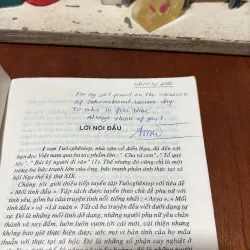 For my girl friend on the occasion
of International women day.
To take in free time
Always think of you!
Anna
LỜI NÓI ĐẦU
I van Tuốcghênhiep, nhà văn cổ điển Nga, đã đến với
bạn đọc Việt nam qua ba tác phẩm lớn: "Cha và con", "Tổ quý
tộc", "Bút ký người đi săn" (1). Thế nhưng đó cũng chỉ là một
trong ba bức tranh lớn của ông, bức tranh phản ánh thực tại xã
hội Nga thế kỷ thứ XIX.
Chúng tôi giới thiệu tiếp tuyển tập Tuốcghênhiep với tiêu đề
« Mối tình đầu ». Tập sách được tuyển theo chủ đề phụ nữ với
tình yêu, gồm ba truyện nổi tiếng của ông: « Atxya », « Mối
tình đầu » và « Lá xuân ». Tất cả ba truyện đều viết dưới dạng tự
sự. Đó là những mối tình dở dang, những người phụ nữ yêu chân
thành và say đắm, luôn luôn vươn tới cái mới, nhưng
không bao giờ thực hiện được; ước mơ vì bản tính của họ mâu
thuẫn với thực tại xã hội; Đó là những số phận cay nghiệt ở